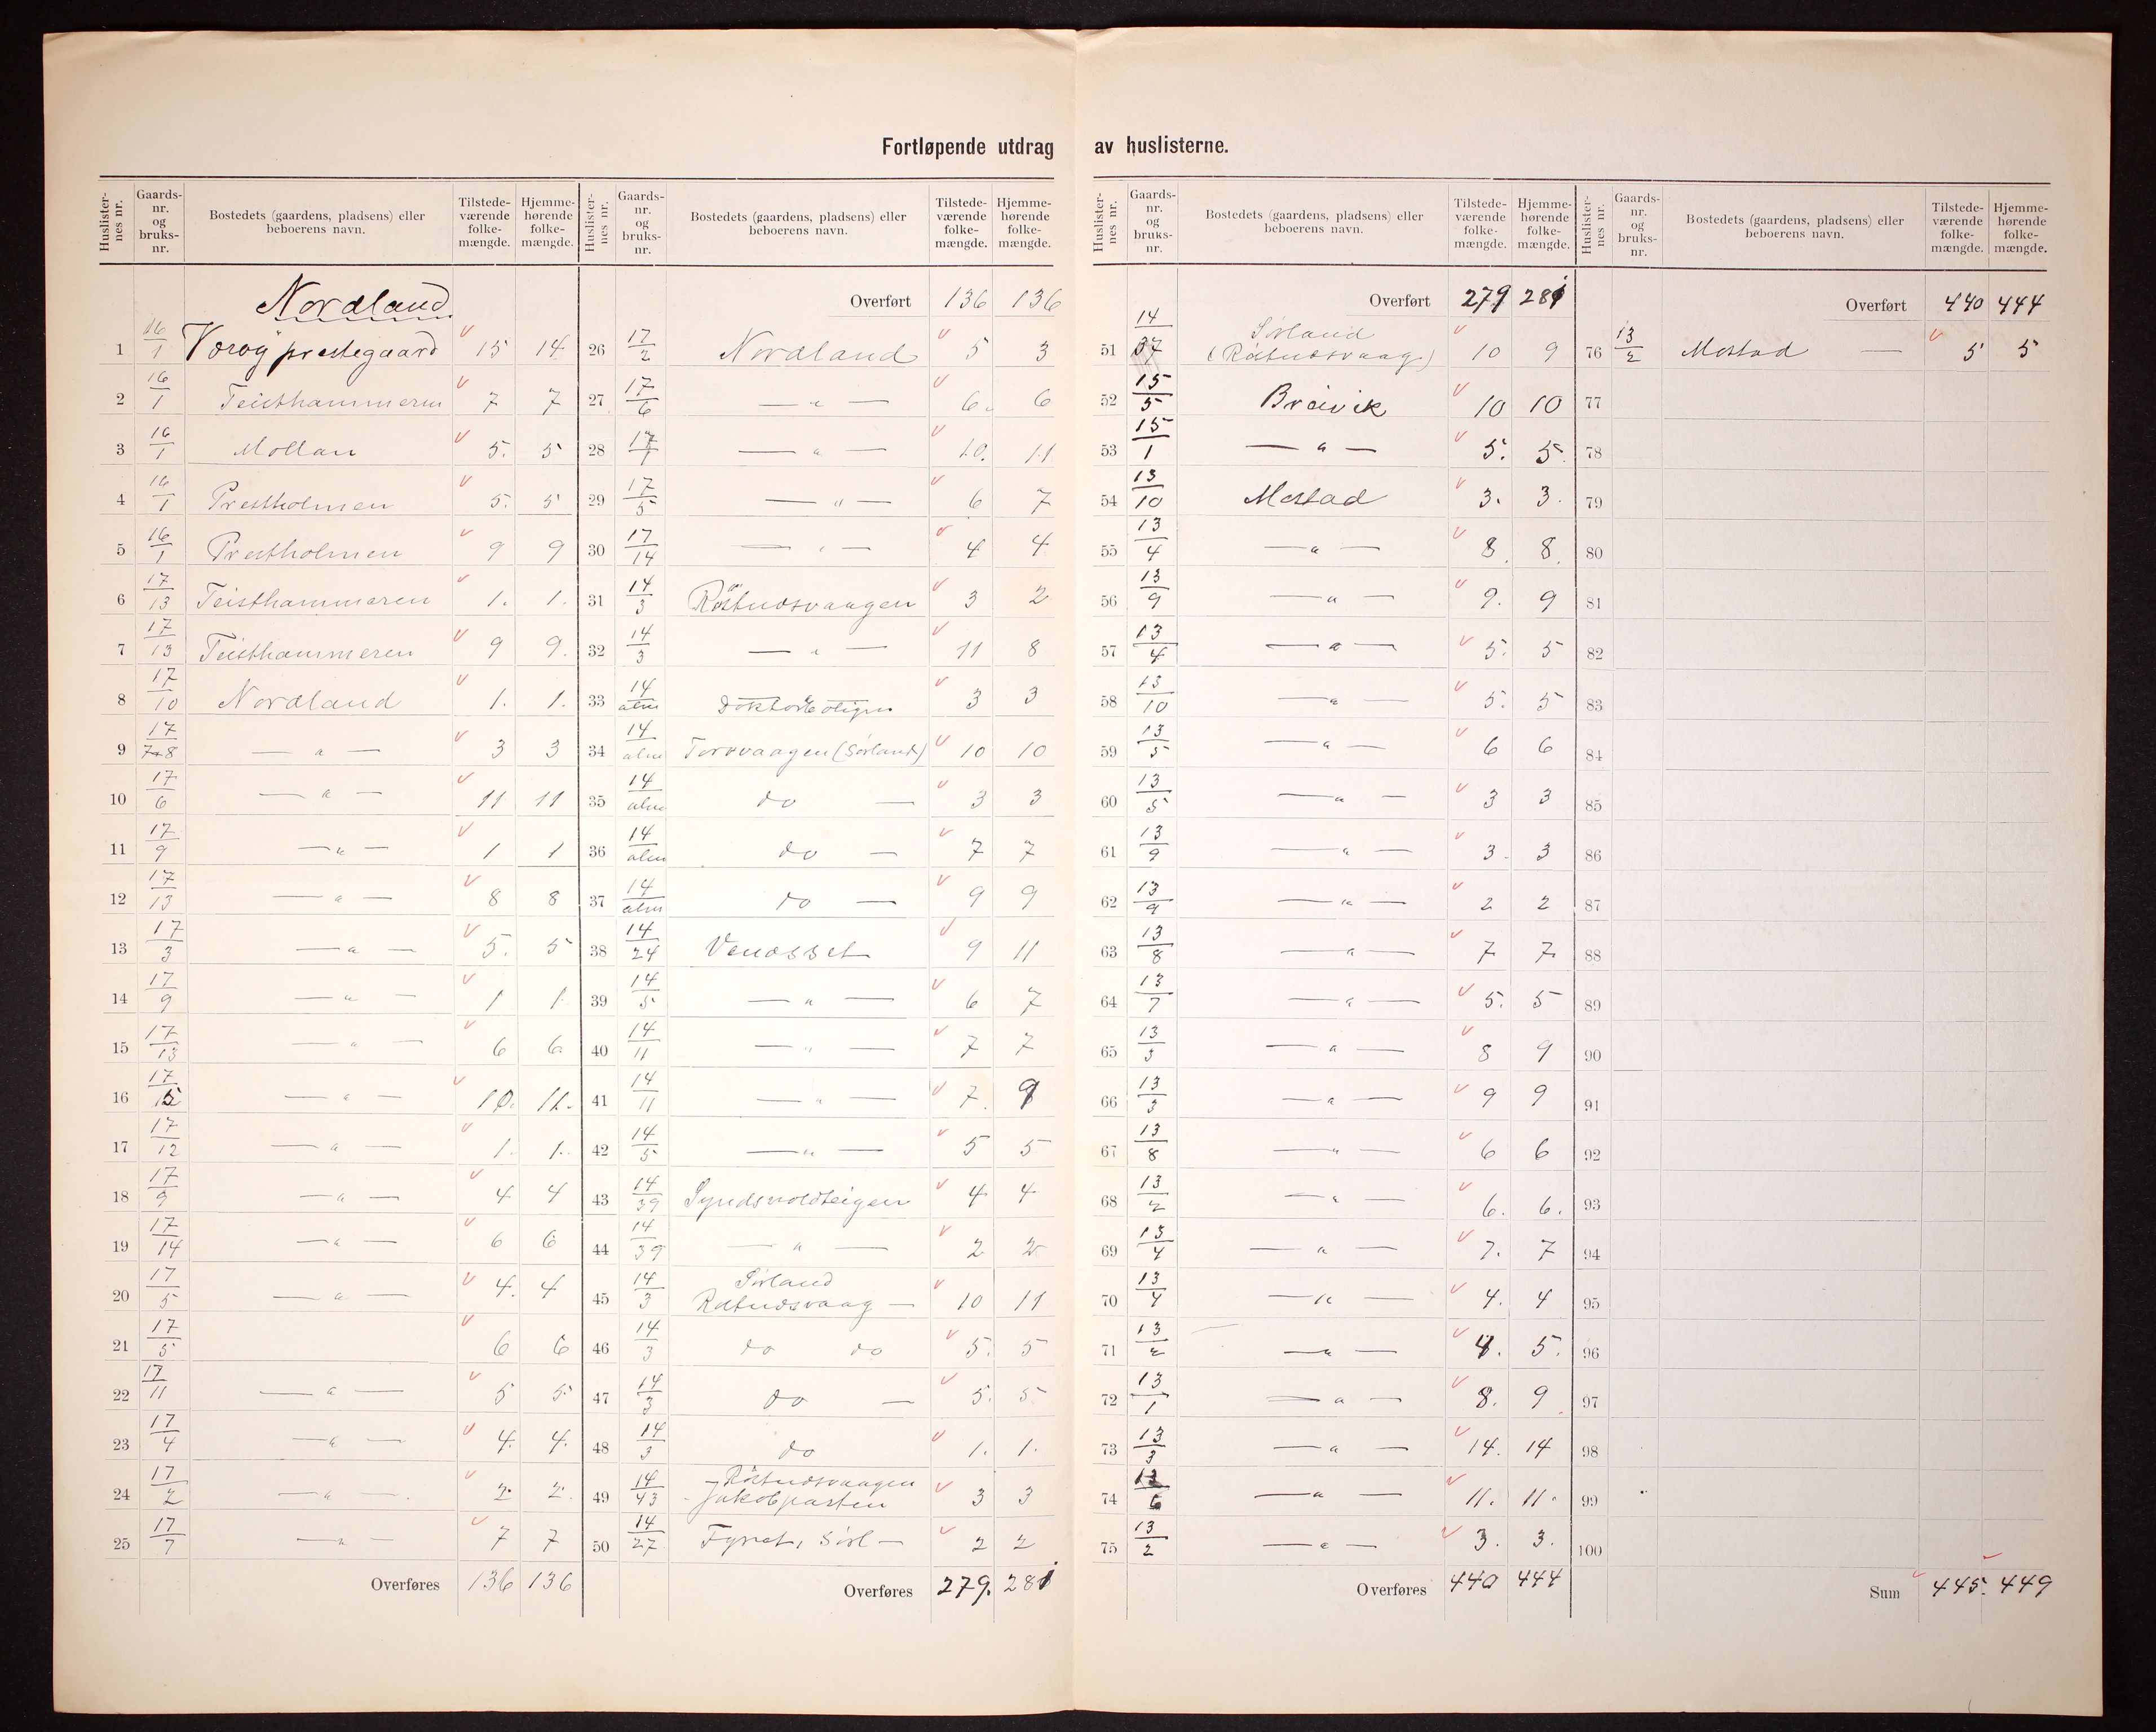 Fortløpende utdrag av huslisterne.
Huslisternes nr. | Gaards-nr. og bruks-nr. | Bostedets (gaardens, pladsens) eller beboerens navn. | Tilstede-værende folke-mængde. | Hjemme-hørende folke-mængde.
Nordland
1 16/1 Værøy prestegaard 15 14
2 16/1 Teisthammeren 7 7
3 16/1 Mollan 5. 5
4 16/1 Prestholmen 5. 5
5 16/1 Prestholmen 9 9
6 17/13 Teisthammeren 1. 1.
7 17/13 Teisthammeren 9 9.
8 17/10 Nordland 1. 1.
9 17/7+8 — " — 3 3
10 17/6 — " — 11 11
11 17/9 — " — 1 1
12 17/13 — " — 8 8
13 17/3 — " — 5. 5
14 17/9 — " — 1 1
15 17/13 — " — 6 6
16 17/ — " — 10. 11.
17 17/12 — " — 1. 1.
18 17/9 — " — 4 4
19 17/14 — " — 6 6
20 17/5 — " — 4. 4
21 17/5 6 6
22 17/11 — " — 5 5
23 17/4 — " — 4. 4.
24 17/2 — " — 2 2.
25 17/7 — " — 7 7
Overføres 136 136
Huslisternes nr. | Gaards-nr. og bruks-nr. | Bostedets (gaardens, pladsens) eller beboerens navn. | Tilstede-værende folke-mængde. | Hjemme-hørende folke-mængde.
Overført 136 136
26 17/2 Nordland 5 3
27 17/6 — " — 6. 6
28 17/1 — " — 10. 11
29 17/5 — " — 6 7
30 17/14 — " — 4 4
31 14/3 Røstnesvaagen 3 2
32 14/3 — " — 11 8
33 14/alm 3 3
34 14/alm Tervvaagen (Sørland) 10 10
35 14/alm do — 3 3
36 14/alm do — 7 7
37 14/alm do — 9 9
38 14/24 9 11
39 14/5 — " — 6 7
40 14/11 — " — 7 7
41 14/11 — " — 7. 9
42 14/5 — " — 5 5
43 14/39 Syndsvoldteigen 4 4
44 14/39 — " — 2 2
45 14/3 Sørland
Røstnesvaag — 10 11
46 14/3 do do 5. 5
47 14/3 do — 5. 5
48 14/3 do 1. 1.
49 14/43 Røstnesvaagen
Jakobparten 3 3
50 14/27 Fyret, Sørl — 2 2
Overføres 279. 281
Huslisternes nr. | Gaards-nr. og bruks-nr. | Bostedets (gaardens, pladsens) eller beboerens navn. | Tilstede-værende folke-mængde. | Hjemme-hørende folke-mængde.
Overført 279 281
51 14/37 Sørland
(Røstnesvaag) 10 9
52 15/5 Breivik 10 10
53 15/1 — " — 5. 5.
54 13/10 Mostad 3. 3.
55 13/4 — " — 8. 8.
56 13/9 — " — 9. 9
57 13/4 — " — 5. 5
58 13/10 — " — 5. 5
59 13/5 — " — 6 6
60 13/5 — " — 3 3
61 13/9 — " — 3. 3
62 13/9 — " — 2 2
63 13/8 — " — 7 7.
64 13/7 — " — 5. 5
65 13/3 — " — 8 9
66 13/3 — " — 9 9
67 13/8 — " — 6 6
68 13/2 — " — 6. 6.
69 13/4 — " — 7. 7
70 13/4 — " — 4. 4
71 13/2 — " — 4. 5.
72 13/1 — " — 8. 9
73 13/3 — " — 14. 14
74 13/6 — " — 11. 11.
75 13/2 — " — 3. 3.
Overføres 440 444
Huslisternes nr. | Gaards-nr. og bruks-nr. | Bostedets (gaardens, pladsens) eller beboerens navn. | Tilstede-værende folke-mængde. | Hjemme-hørende folke-mængde.
Overført 440 444
76 13/2 Mostad — 5 5
77
78
79
80
81
82
83
84
85
86
87
88
89
90
91
92
93
94
95
96
97
98
99
100
Sum 445. 449